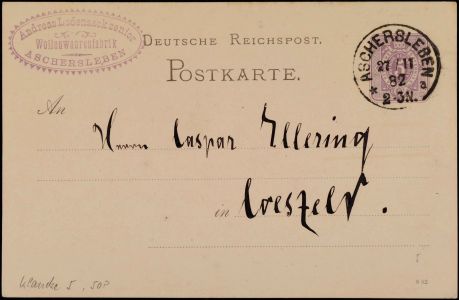 Andreas Lodenack senior
Wollenwaarenfabrik
ASCHERSLEBEN
DEUTSCHE REICHSPOST.
POSTKARTE.
ASCHERSLEBEN
27 11
82
2-3N.
* a
An
Herrn Caspar Ellering
in Coesfeld.
5, 50